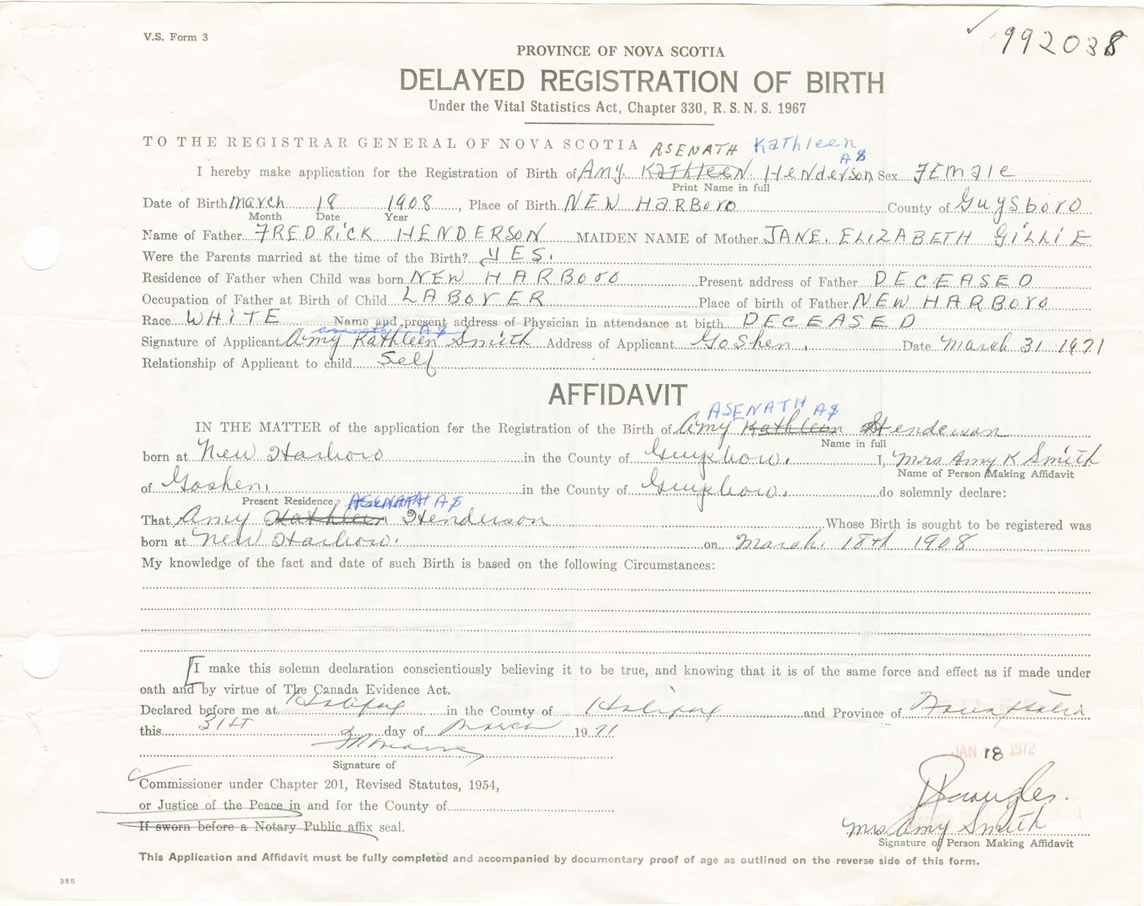 V.S. Form 3
992038
PROVINCE OF NOVA SCOTIA
DELAYED REGISTRATION OF BIRTH
Under the Vital Statistics Act, Chapter 330, R.S.N.S. 1967
TO THE REGISTRAR GENERAL OF NOVA SCOTIA
ASENATH Kathleen
A$
I hereby make application for the Registration of Birth of Amy KathleeN HeNdersoN Sex FEmale
Print Name in full
Date of Birth march 18 1908, Place of Birth NEW HARBoro County of Guysboro
Month Date Year
Name of Father FREDRICK HENDERSON MAIDEN NAME of Mother JANE. ELIZABETH GILLIE
Were the Parents married at the time of the Birth? YES.
Residence of Father when Child was born NEW HARBoro Present address of Father DECEASED
Occupation of Father at Birth of Child LABOYER Place of birth of Father NEW HARBoro
Race WHITE Name and present address of Physician in attendance at birth DECEASED
asenath A$
Signature of Applicant Amy Kathleen Smith Address of Applicant GoShen. Date March 31 1971
Relationship of Applicant to child Self
AFFIDAVIT
ASENATH A$
IN THE MATTER of the application for the Registration of the Birth of Amy Kathleen Henderson
Name in full
born at New Harbow in the County of Guysbow. I, Mrs Amy K Smith
Name of Person Making Affidavit
of Goshen. in the County of Guysbow. do solemnly declare:
Present Residence ASENATH A$
That Amy Kathleen Henderson Whose Birth is sought to be registered was
born at New Harbow. on March. 18th 1908
My knowledge of the fact and date of such Birth is based on the following Circumstances:
I make this solemn declaration conscientiously believing it to be true, and knowing that it is of the same force and effect as if made under
oath and by virtue of The Canada Evidence Act.
Declared before me at Halifax in the County of Halifax and Province of Nova Scotia
this 31st day of March 1971
Signature of
JAN 18 1972
Commissioner under Chapter 201, Revised Statutes, 1954,
or Justice of the Peace in and for the County of
If sworn before a Notary Public affix seal.
Mrs Amy Smith
Signature of Person Making Affidavit
This Application and Affidavit must be fully completed and accompanied by documentary proof of age as outlined on the reverse side of this form.
385